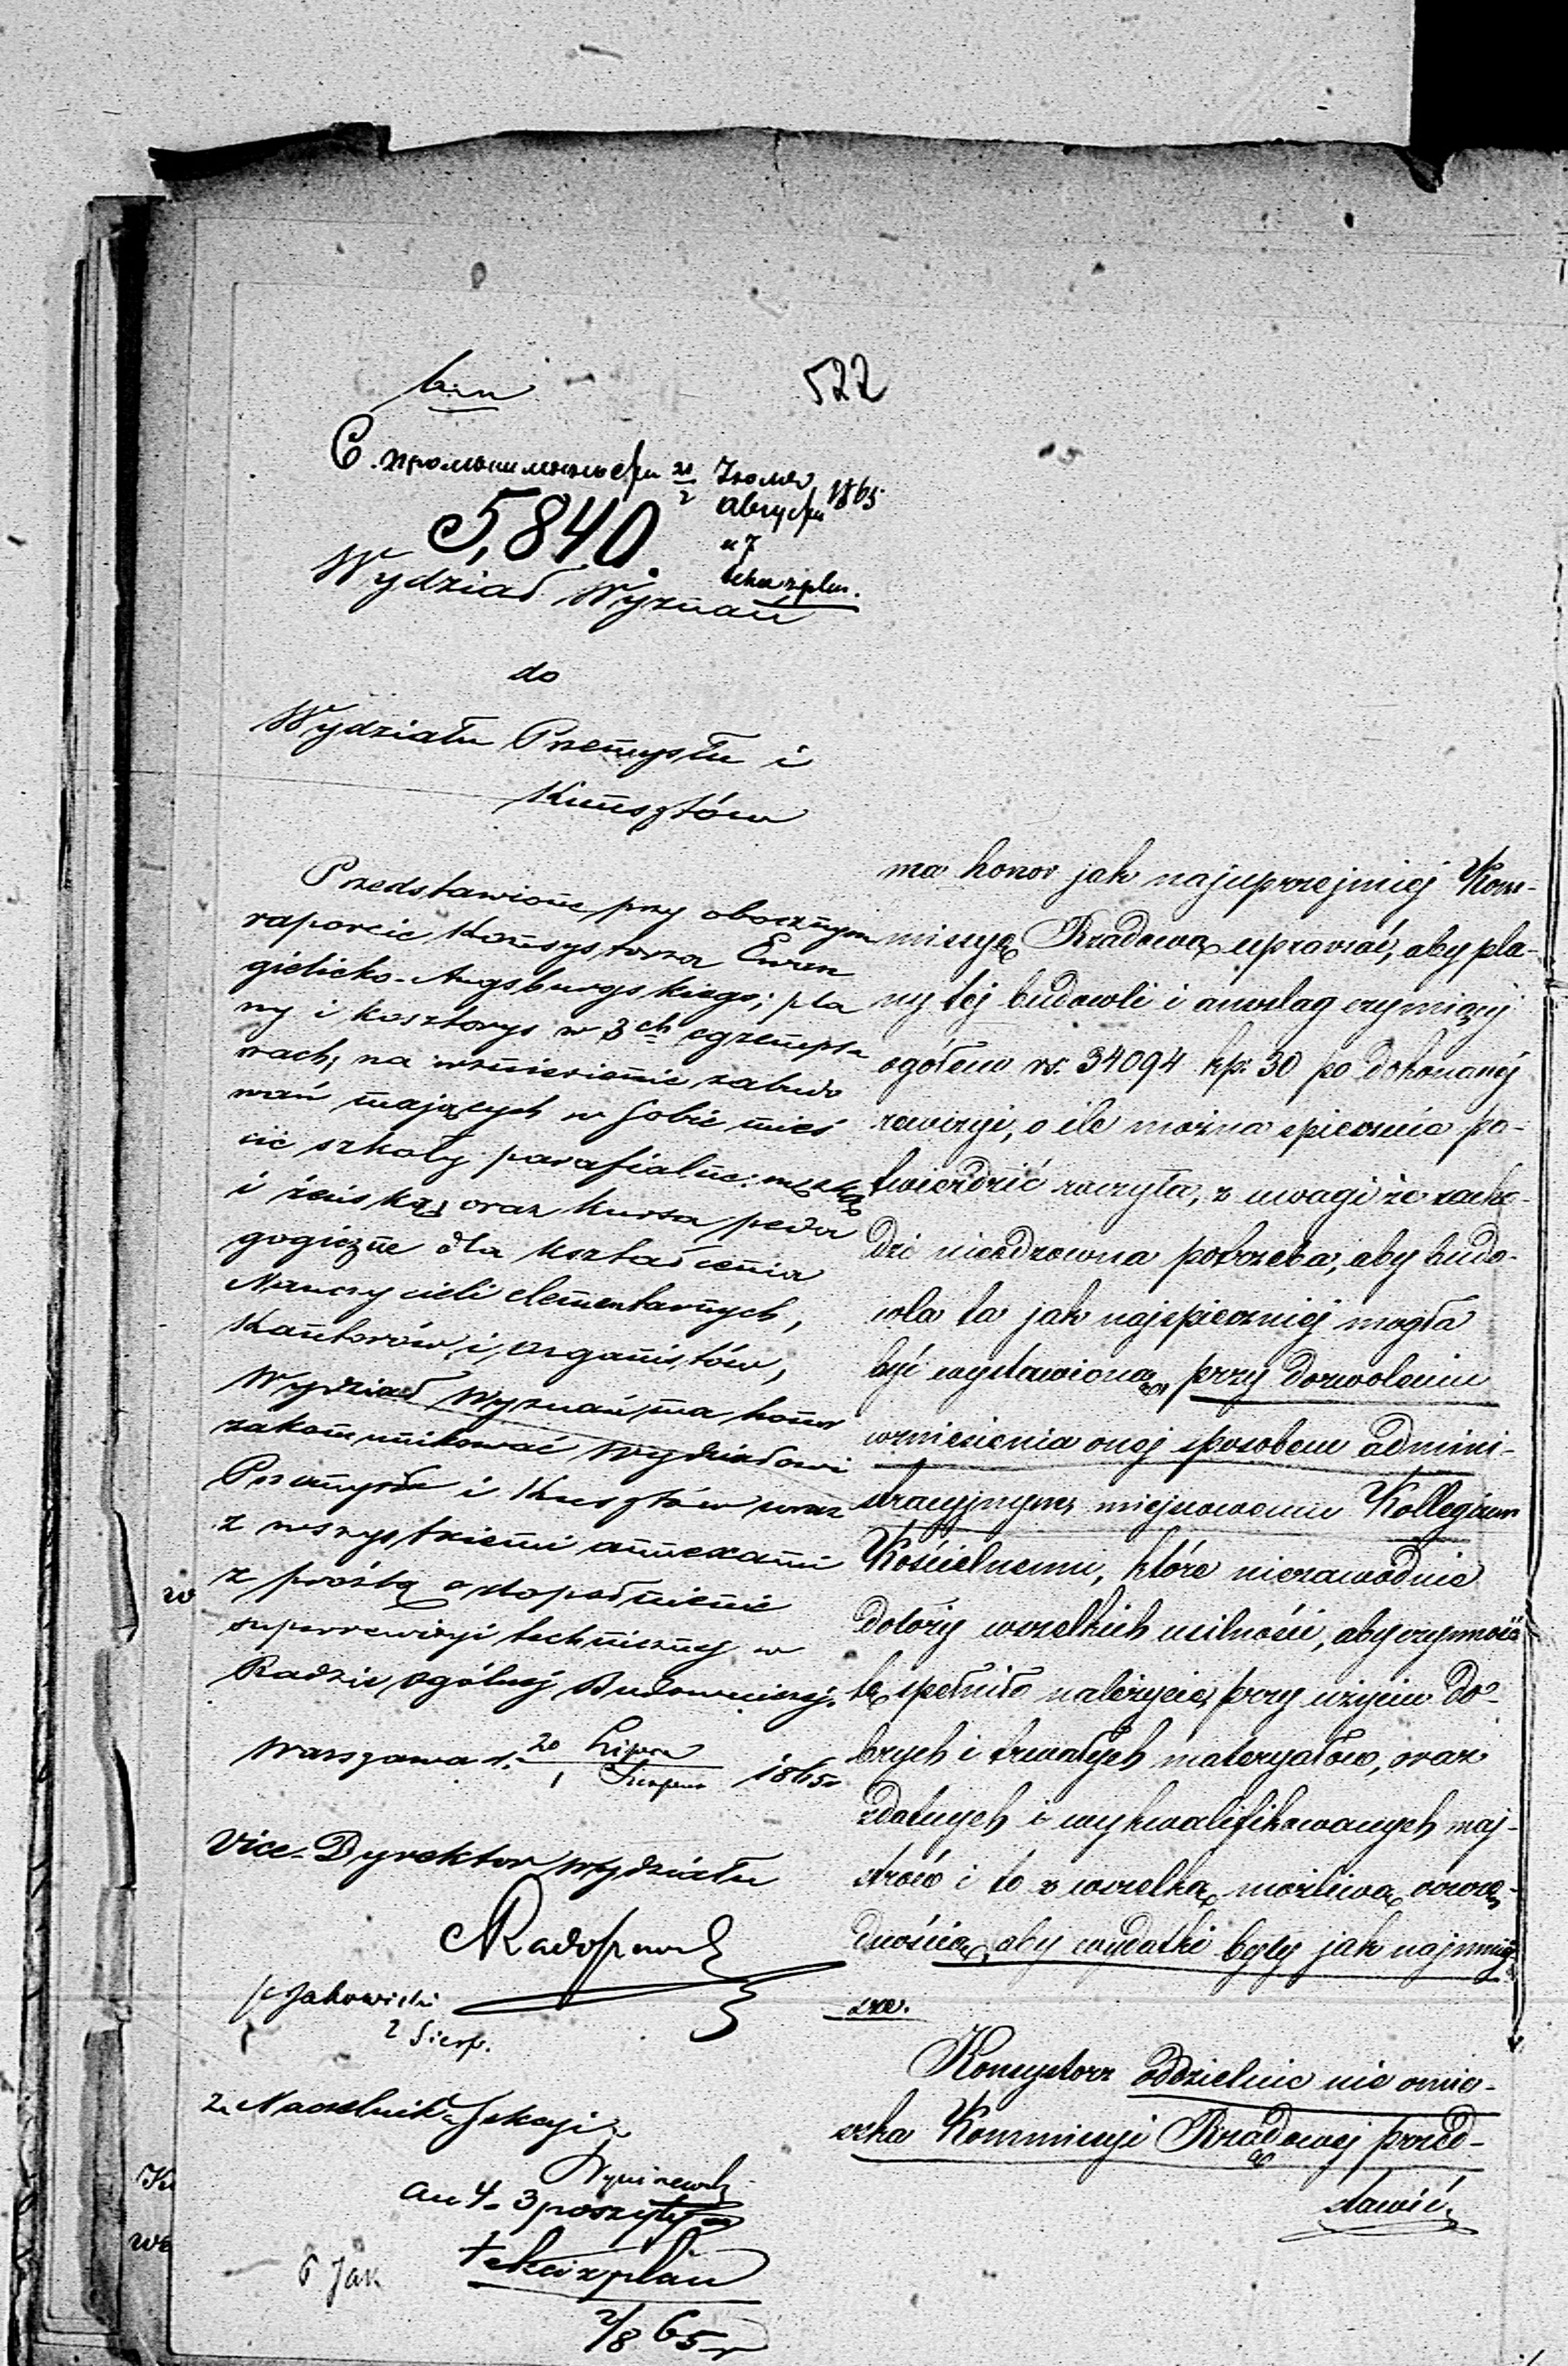 522
С. промышленности 20/2 Июля/Августа 1865
5,840.
a 7
teka z plan.
Wydział Wyznań
do
Wydziału Przemysłu i
Kunsztów
Przedstawione przy obocznym
raporcie Konsystorza Ewan
gielicko-Augsburgskiego; pla
ny i kosztorys w 3ch egzempla
rach, na wzniesienie zabudo
wań mających w sobie mieś
cić szkoły parafialne: męzką
i żeńską, oraz kursa peda
gogiczne dla kształcenia
Nauczycieli elementarnych,
Kantorów i organistów,
Wydział Wyznań ma honor
zakommunikować Wydziałowi
Przemysłu i Kunsztów wraz
z wszystkiemi annexami
z prośbą o dopełnienie
superrewizyi technicznej w
Radzie ogólnej Budowniczej.
Warszawa d. 20 Lipca / 1 Sierpnia 1865r
Vice-Dyrektor Wydziału
2 Sierp.
z. Naczelnik Sekcyi
an 4-3 poszyty
teka z plan
2/8 65 r
6 Jak
ma honor jak najuprzejmiej Kom-
missyę Rządową upraszać, aby pla-
ny tej budowli i anszlag czyniący
ogółem rs. 34094 kp. 30 po dokonanej
rewizyi, o ile można spiesznie po-
twierdzić raczyła, z uwagi że zacho-
dzi niezbędna potrzeba, aby budo-
wla ta jak najspieszniej mogła
być wystawioną, przy dozwoleniu
wzniesienia onej sposobem admini-
stracyjnym, miejscowemu Kollegium
Kościelnemu, które niezawodnie
dołoży wszelkich usilności, aby czynność
tę spełniło należycie, przy użyciu do-
brych i trwałych materyałów, oraz
zdatnych i wykwalifikowanych maj-
strów i to z wszelką możliwą oszczę-
dnością, aby wydatki były jak najmniej-
sze.
Konsystorz oddzielnie nie omie-
szka Kommissyi Rządowej przed-
stawić